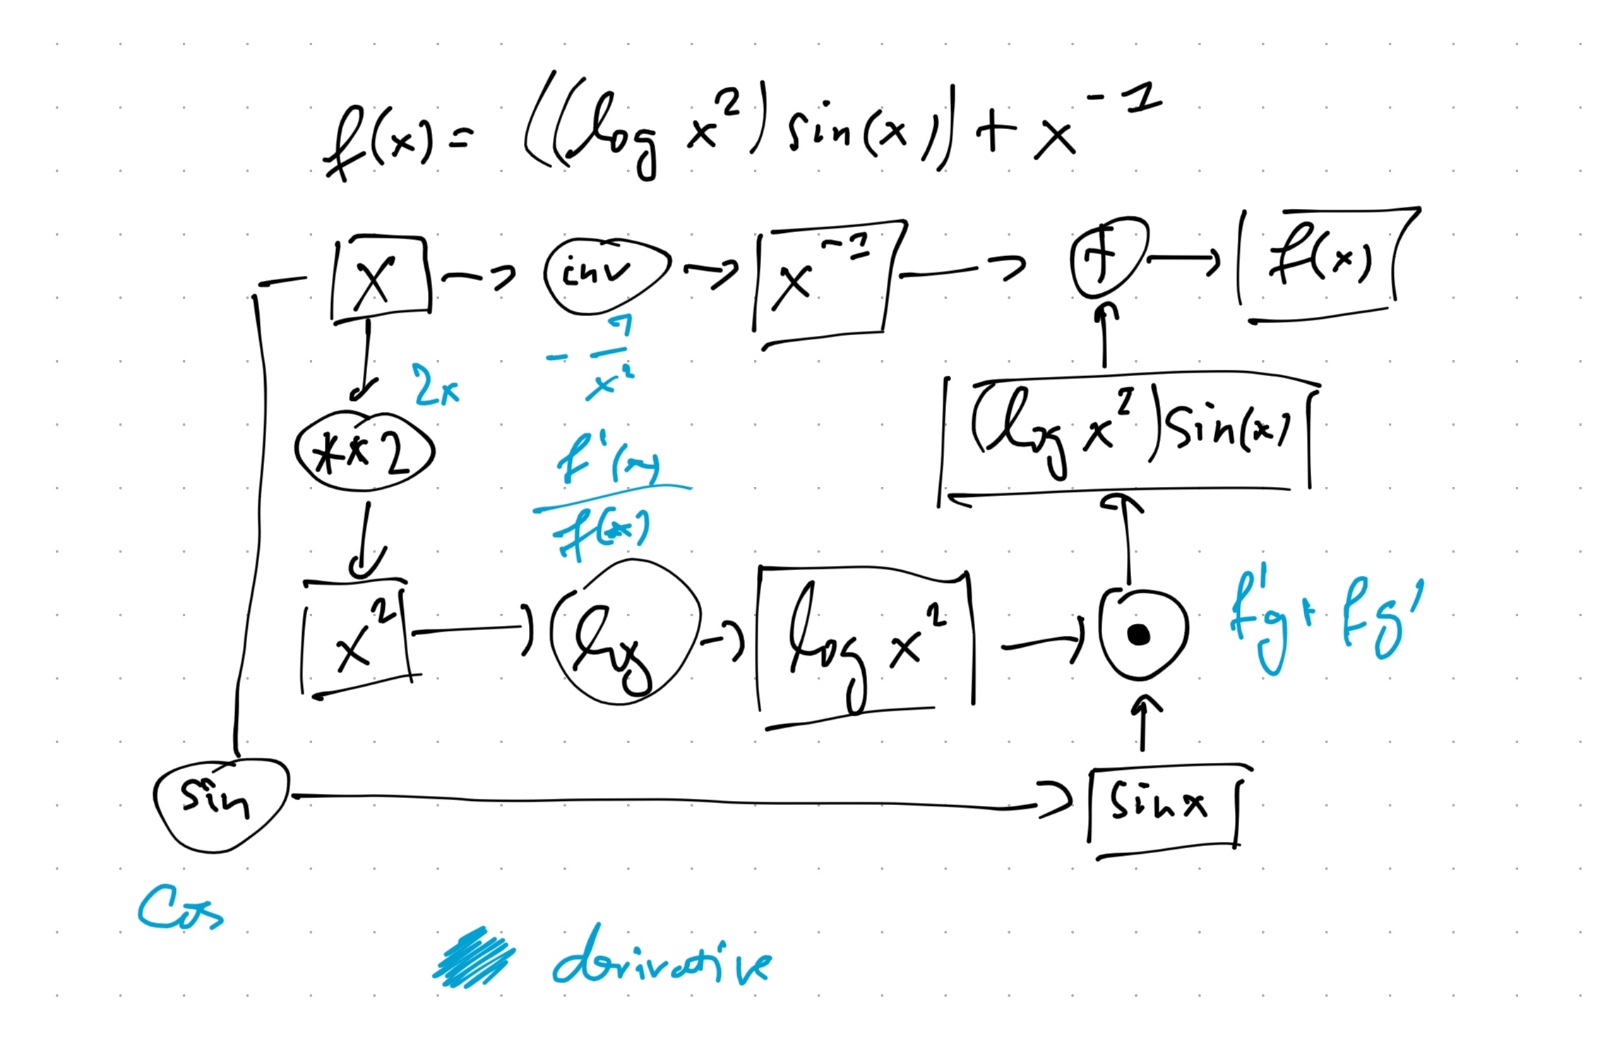 f(x) = ((log x²) sin(x)) + x⁻¹
x → inv → x⁻¹ → + → f(x)
2x
- 1/x²
**2
f'(x)/f(x)
(log x²) sin(x)
x² → log → log x² → •
f'g + fg'
sin → sin x
Cos
derivative